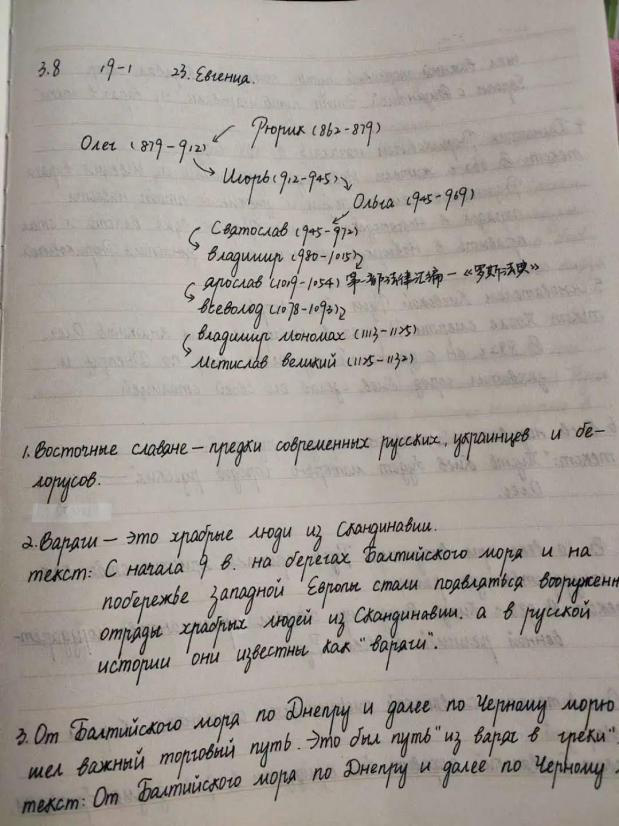 3.8 19-1 23. Евгенца.
Рюрик (862-879)
Олег (879-912)
Игорь (912-945)
Ольга (945-969)
Сватослав (945-972)
владимир (980-1015)
ярослав (1019-1054) 第一部法律汇编—《罗斯法典》
всеволод (1078-1093)
владимир мономах (1113-1125)
мстислав великий (1125-1132)
1. Восточные славане — предки современных русских, украинцев и бе-
лорусов.
2. Вараги — это храбрые люди из Скандинавии.
текст: С начала 9 в. на берегах Балтийского моря и на
побережье западной Европы стали появляться вооруженн
отряды храбрых людей из Скандинавии. а в русской
истории они известны как "вараги".
3. От Балтийского моря по Днепру и далее по Черному морю
шел важный торговый путь. Это был путь "из варяг в греки".
текст: От Балтийского моря по Днепру и далее по Черному